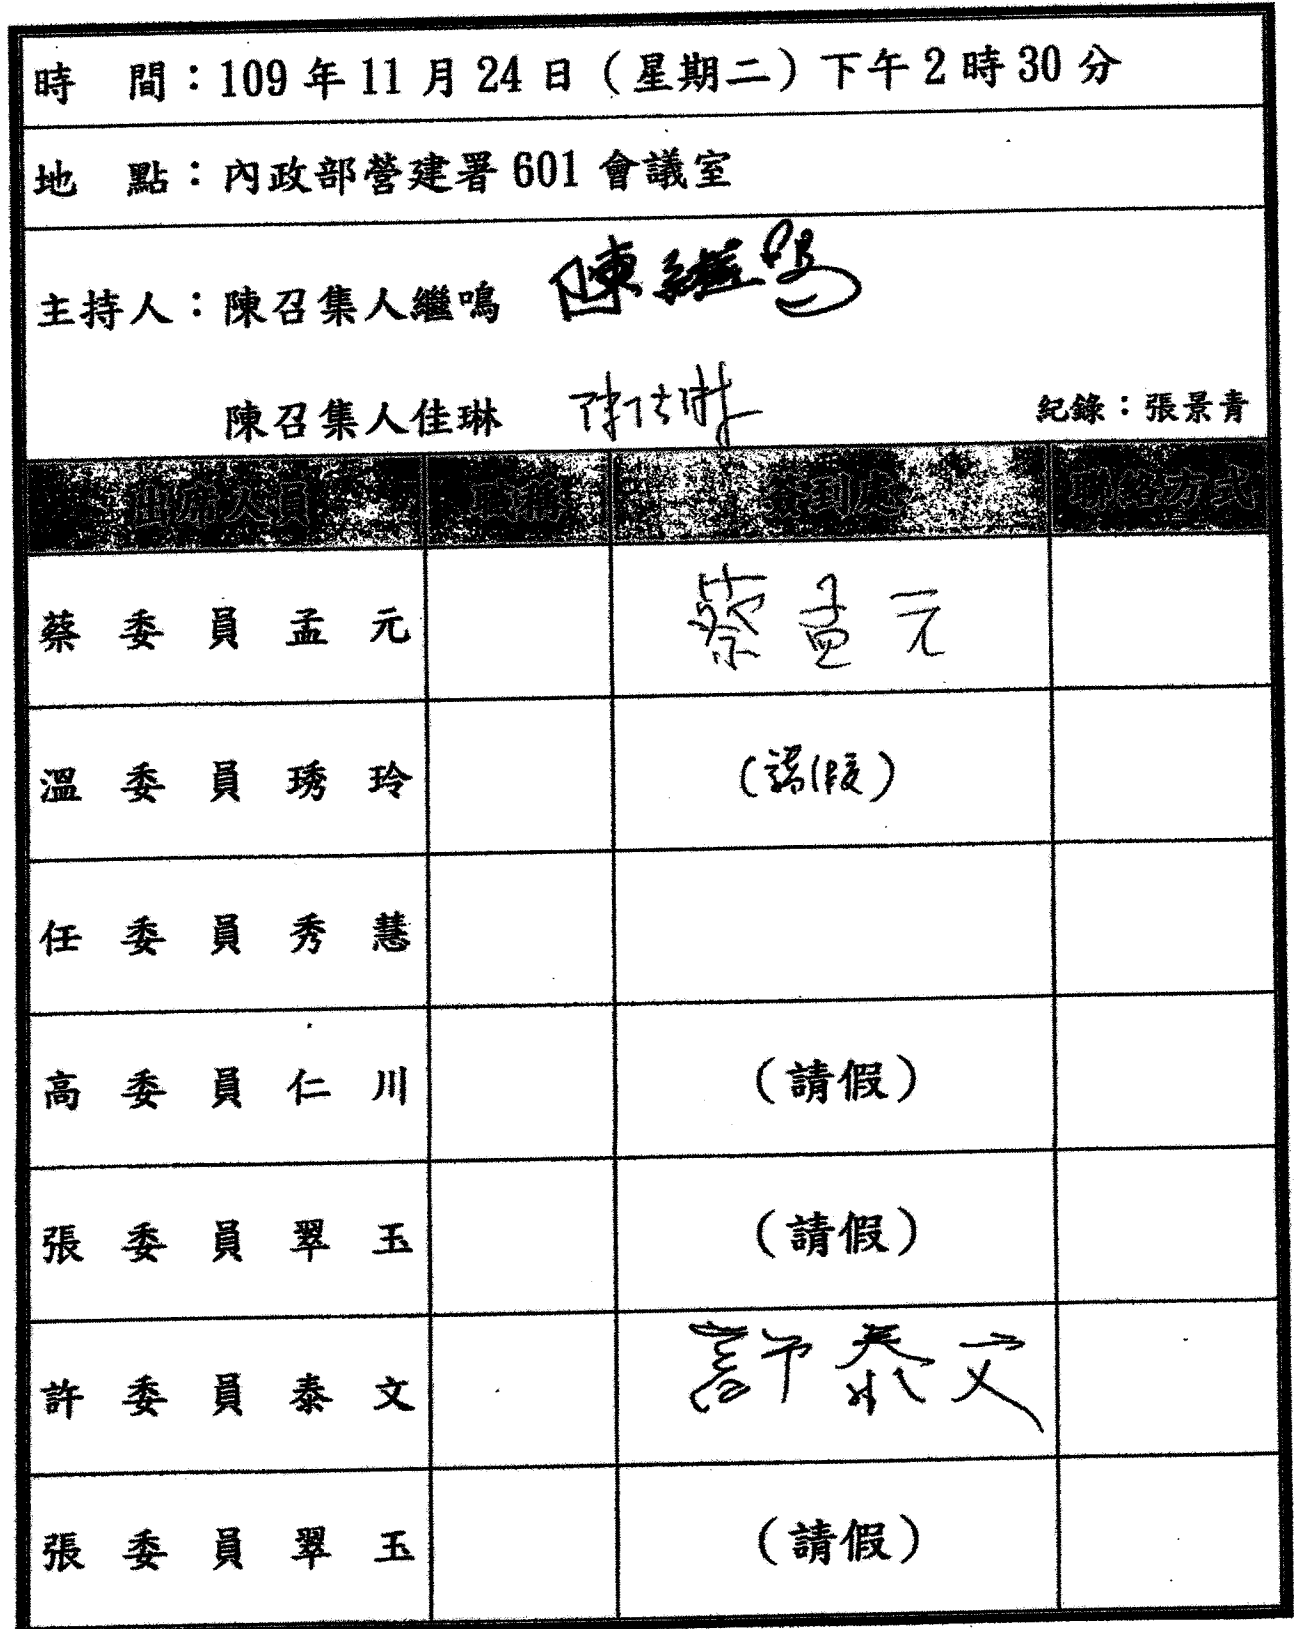 時　間：109年11月24日（星期二）下午2時30分
地　點：內政部營建署601會議室
主持人：陳召集人繼鳴 陳繼鳴
陳召集人佳琳 陳佳琳 紀錄：張景青
出席人員 職稱 簽到處 聯絡方式
蔡委員孟元 蔡孟元
溫委員琇玲 (請假)
任委員秀慧
高委員仁川 （請假）
張委員翠玉 （請假）
許委員泰文 許泰文
張委員翠玉 （請假）